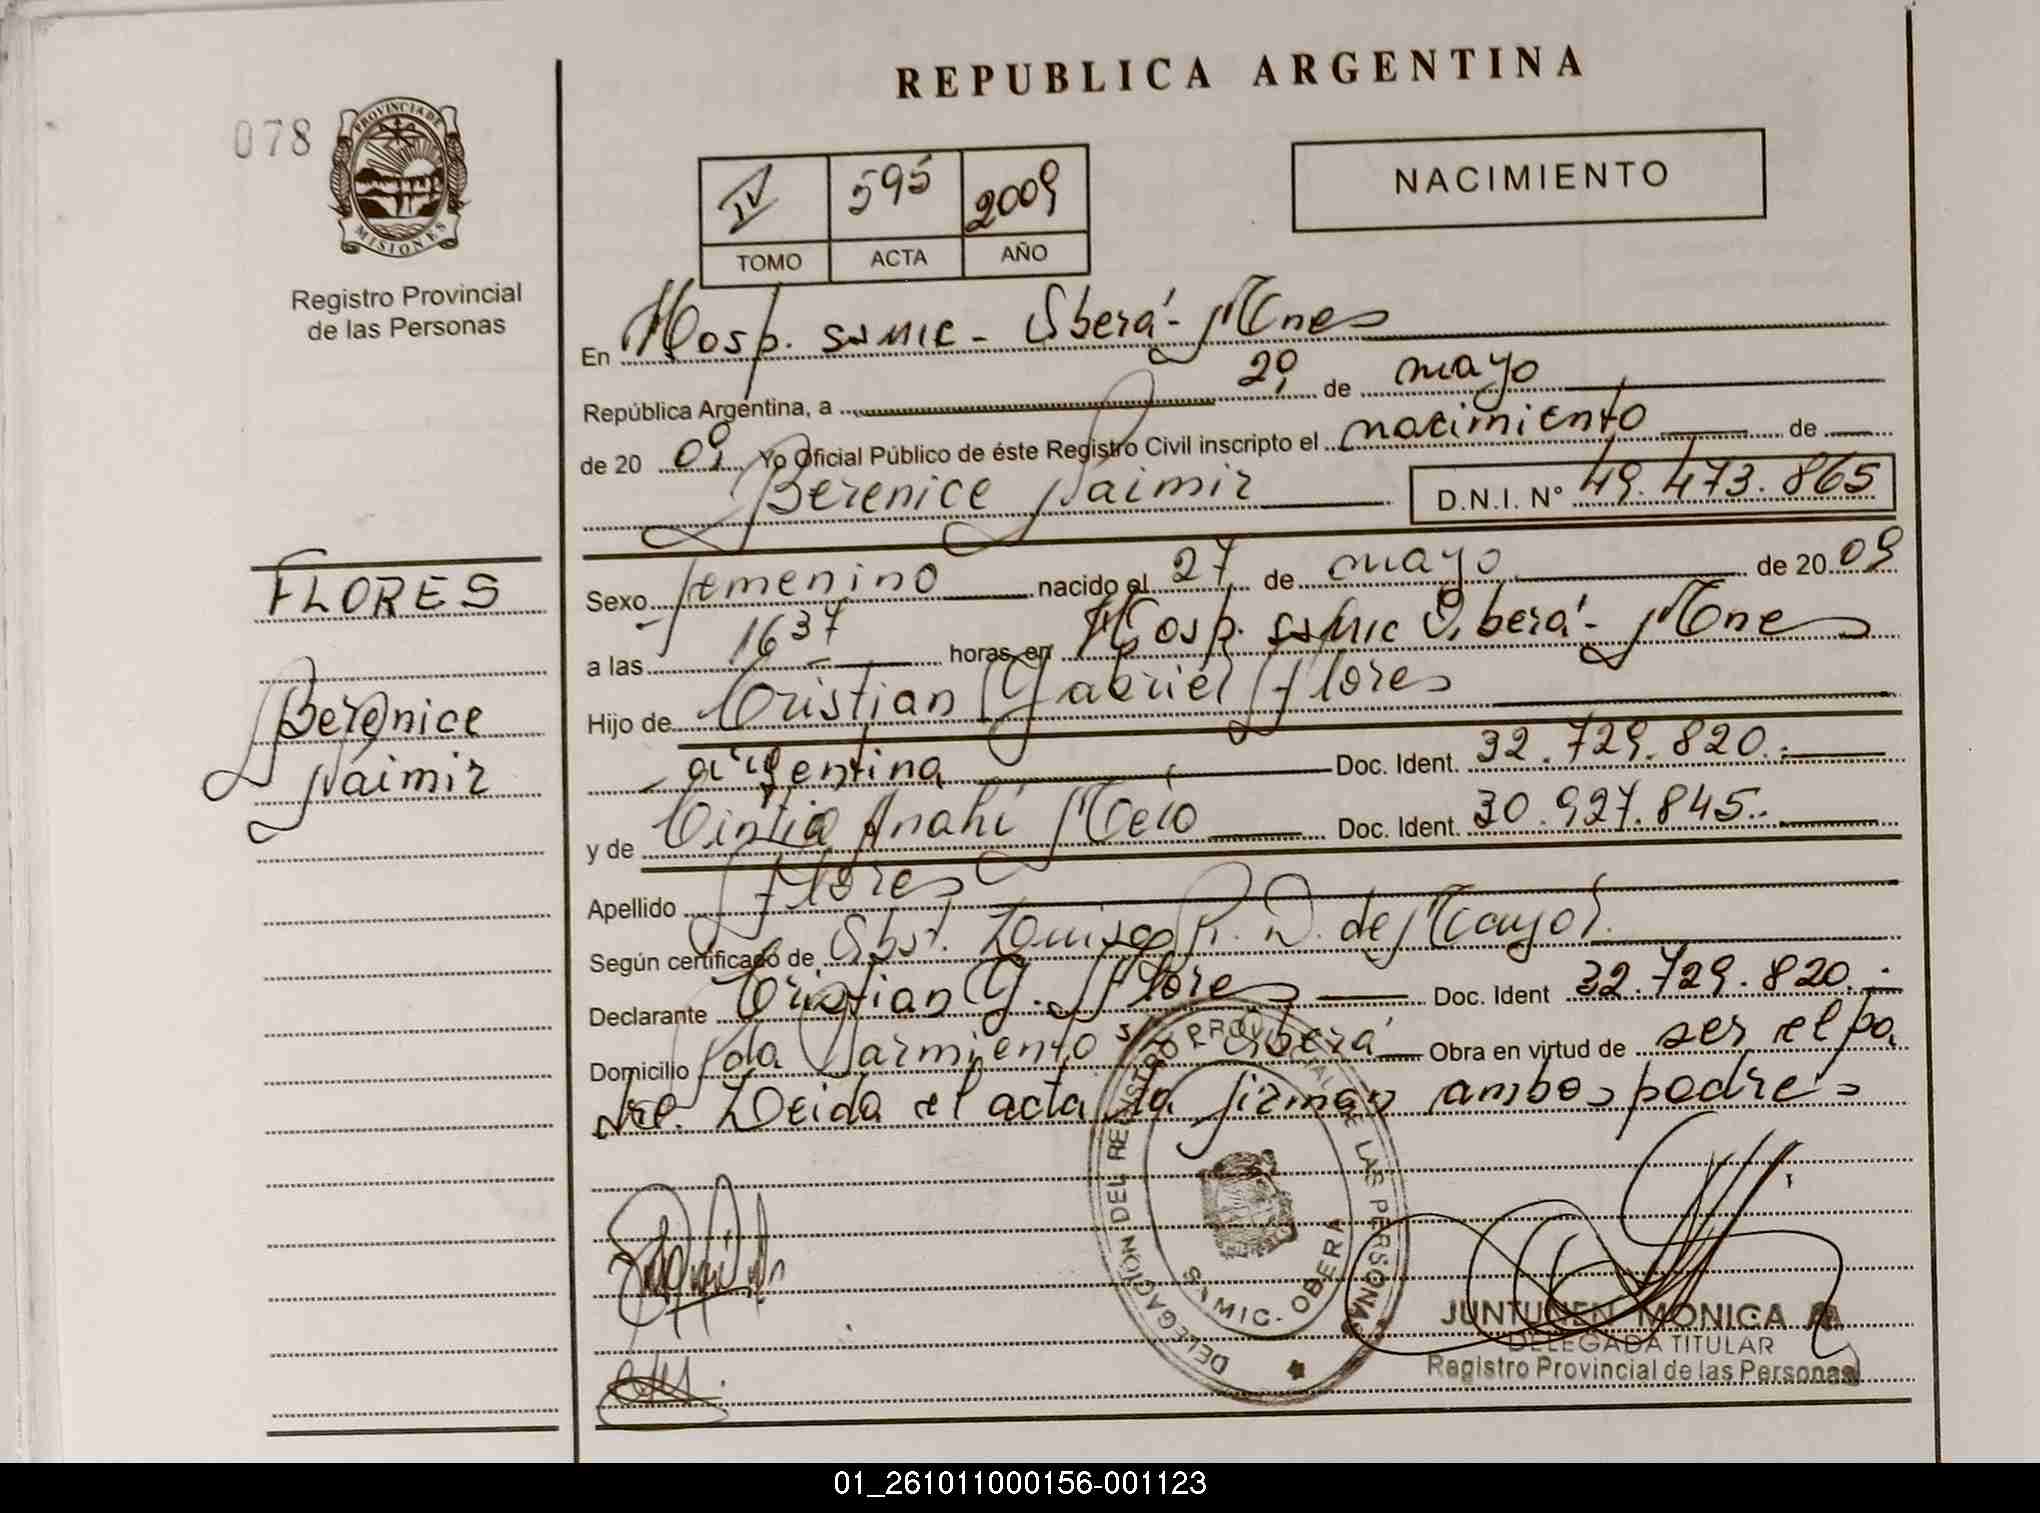 REPUBLICA ARGENTINA
078
PROVINCIA DE
MISIONES
Registro Provincial
de las Personas
IV 595 2009
TOMO ACTA AÑO
NACIMIENTO
En Hosp. SAMIC - Oberá - Mnes
República Argentina, a 29 de mayo
de 20 09 Yo Oficial Público de éste Registro Civil inscripto el nacimiento de
Berenice Naimir D.N.I. Nº 49.473.865
FLORES
Berenice
Naimir
Sexo femenino nacido el 27 de mayo de 20 09
a las 16 37 horas, en Hosp. SAMIC Oberá - Mnes
Hijo de Cristian Gabriel Flores
argentina Doc. Ident. 32.729.820.-
y de Cintia Anahí Meio Doc. Ident. 30.927.845.-
Apellido Flores
Según certificado de Obst. Luisa R. D. de Mayol
Declarante Cristian G. Flores Doc. Ident 32.729.820.-
Domicilio Pda Sarmiento Oberá Obra en virtud de ser el pa
dre. Leida el acta la firman ambos padres
DELEGACIÓN DEL REGISTRO PROVINCIAL DE LAS PERSONAS
SAMIC. OBERA
JUNTUNEN MONICA A
DELEGADA TITULAR
Registro Provincial de las Personas
01_261011000156-001123